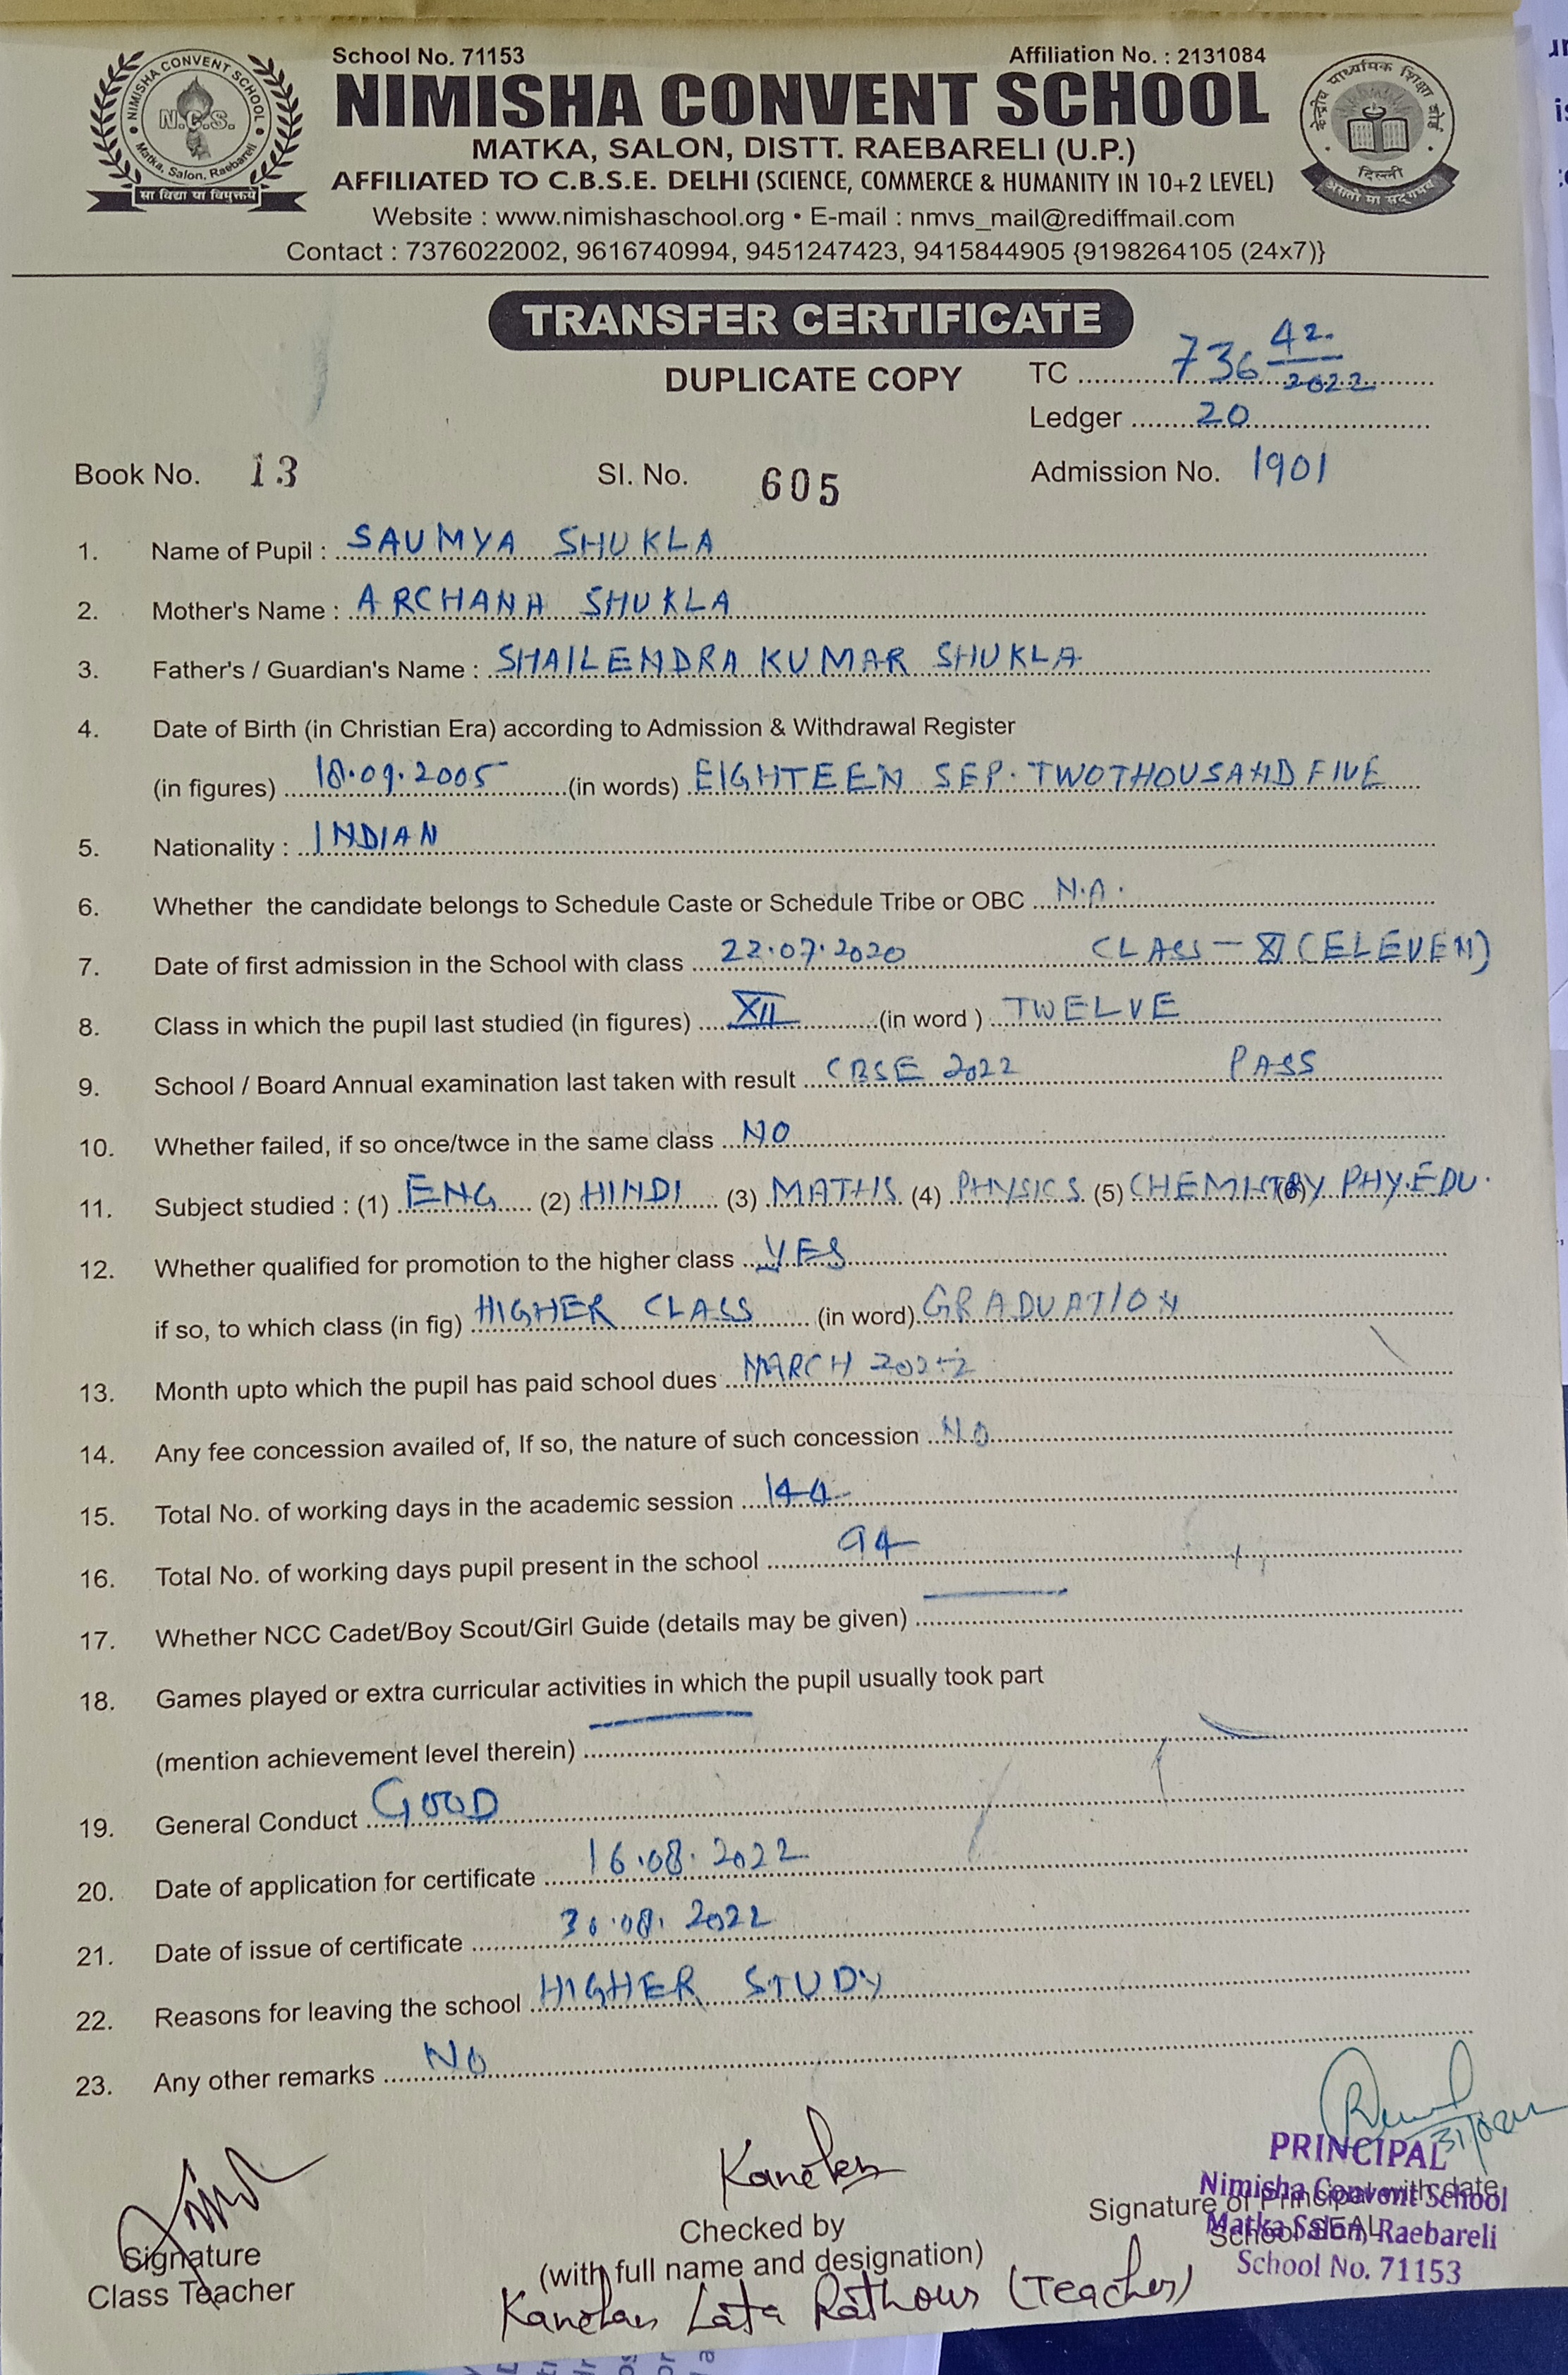 School No. 71153 Affiliation No. : 2131084
NIMISHA CONVENT SCHOOL
NIMISHA CONVENT SCHOOL
N.C.S.
Matka, Salon, Raebareli
सा विद्या या विमुक्तये
केन्द्रीय माध्यमिक शिक्षा बोर्ड
दिल्ली
असतो मा सद्गमय
MATKA, SALON, DISTT. RAEBARELI (U.P.)
AFFILIATED TO C.B.S.E. DELHI (SCIENCE, COMMERCE & HUMANITY IN 10+2 LEVEL)
Website : www.nimishaschool.org • E-mail : nmvs_mail@rediffmail.com
Contact : 7376022002, 9616740994, 9451247423, 9415844905 {9198264105 (24x7)}
TRANSFER CERTIFICATE
DUPLICATE COPY TC 736 42/2022
Ledger 20
Book No. 13 Sl. No. 605 Admission No. 1901
1. Name of Pupil : SAUMYA SHUKLA
2. Mother's Name : ARCHANA SHUKLA
3. Father's / Guardian's Name : SHAILENDRA KUMAR SHUKLA
4. Date of Birth (in Christian Era) according to Admission & Withdrawal Register
(in figures) 18.09.2005 (in words) EIGHTEEN SEP. TWOTHOUSAND FIVE
5. Nationality : INDIAN
6. Whether the candidate belongs to Schedule Caste or Schedule Tribe or OBC N.A.
7. Date of first admission in the School with class 22.07.2020 CLASS - XI (ELEVEN)
8. Class in which the pupil last studied (in figures) XII (in word ) TWELVE
9. School / Board Annual examination last taken with result CBSE 2022 PASS
10. Whether failed, if so once/twce in the same class NO
11. Subject studied : (1) ENG (2) HINDI (3) MATHS (4) PHYSICS (5) CHEMISTRY (6) PHY.EDU.
12. Whether qualified for promotion to the higher class YES
if so, to which class (in fig) HIGHER CLASS (in word) GRADUATION
13. Month upto which the pupil has paid school dues MARCH 2022
14. Any fee concession availed of, If so, the nature of such concession NO
15. Total No. of working days in the academic session 144
16. Total No. of working days pupil present in the school 94
17. Whether NCC Cadet/Boy Scout/Girl Guide (details may be given)
18. Games played or extra curricular activities in which the pupil usually took part
(mention achievement level therein)
19. General Conduct GOOD
20. Date of application for certificate 16.08.2022
21. Date of issue of certificate 30.08.2022
22. Reasons for leaving the school HIGHER STUDY
23. Any other remarks NO
Kanchan
PRINCIPAL
Nimisha Convent School
Matka Salon, Raebareli
School No. 71153
Signature of Principal with date
School SEAL
Signature
Class Teacher
Checked by
(with full name and designation)
Kanchan Lata Rathour (Teacher)